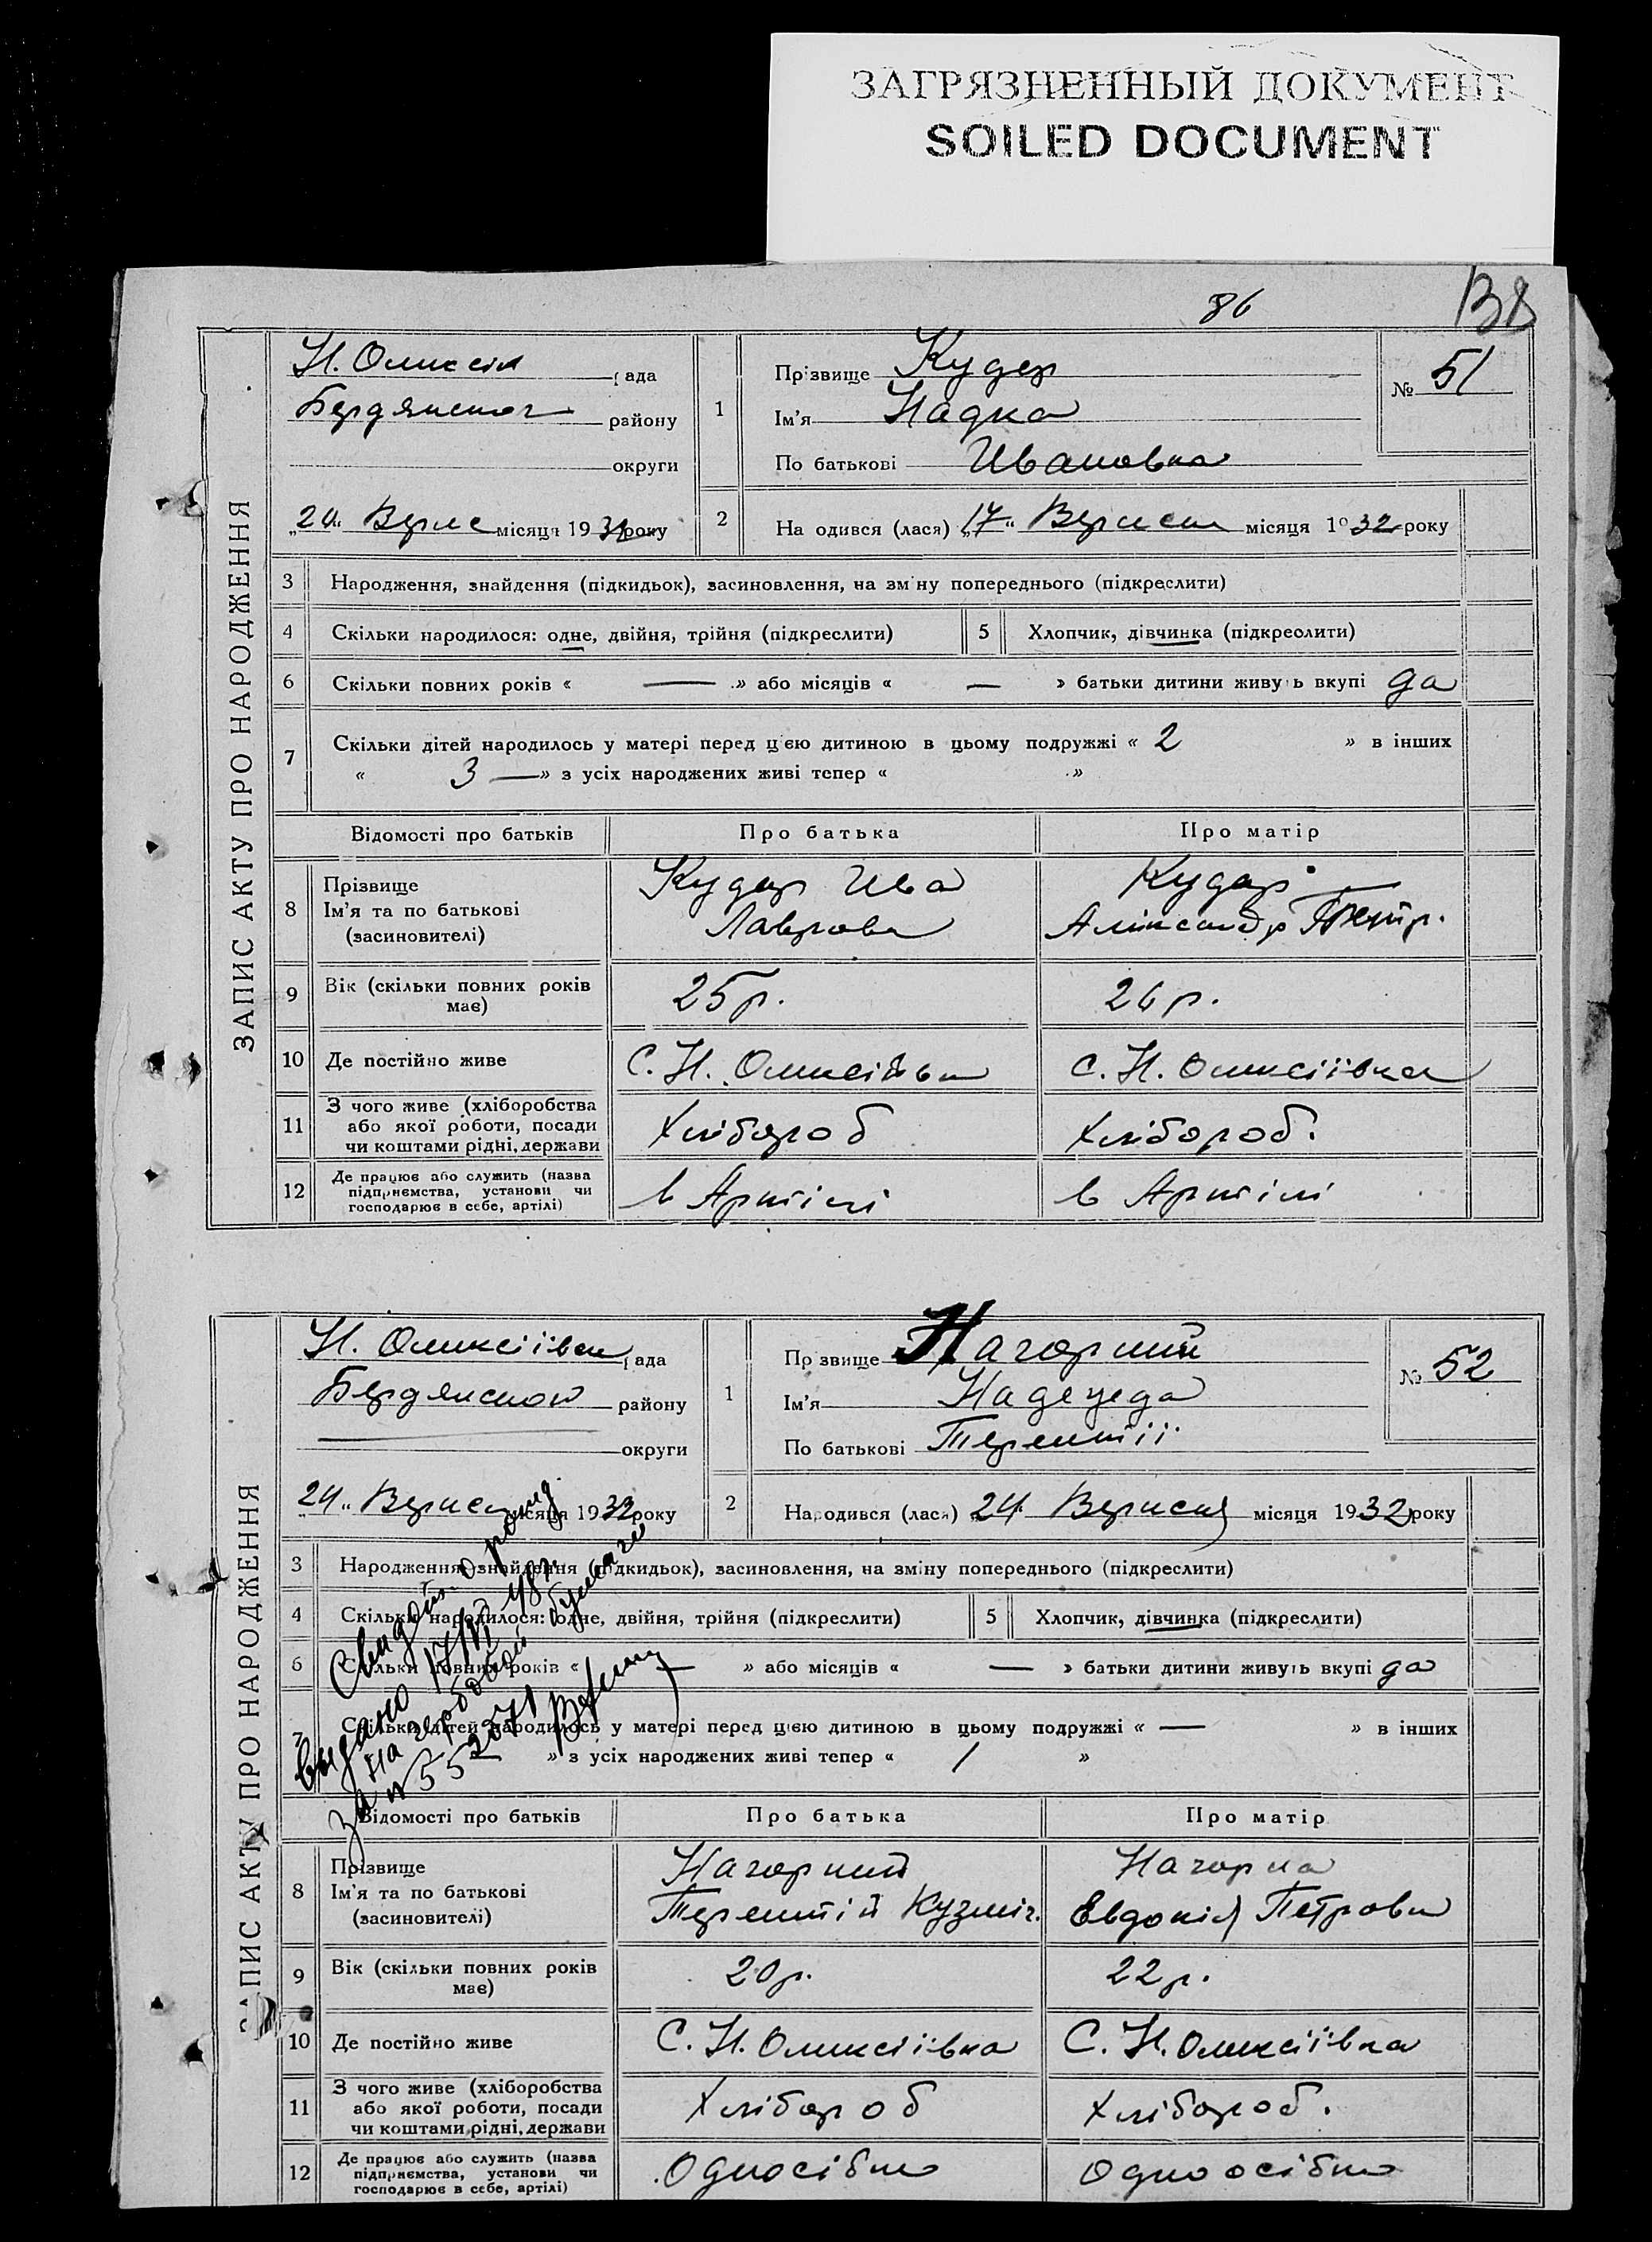 ЗАГРЯЗНЕННЫЙ ДОКУМЕНТ
SOILED DOCUMENT
86
138
ЗАПИС АКТУ ПРО НАРОДЖЕННЯ
Н. Оликсія рада
Бердянског району
округи
1
Прізвище Кудер
Ім'я Надка
По батькові Ивановна
№ 51
„20“ Верне місяця 1932 року
2
На одився (лася) „17“ Вернем місяця 1932 року
3 Народження, знайдення (підкидьок), засиновлення, на зміну попереднього (підкреслити)
4 Скільки народилося: одне, двійня, трійня (підкреслити)
5 Хлопчик, дівчинка (підкреслити)
6 Скільки повних років « — » або місяців « — » батьки дитини живуть вкупі да
7 Скільки дітей народилось у матері перед цією дитиною в цьому подружжі « 2 » в інших
« 3 — » з усіх народжених живі тепер « »
Відомості про батьків Про батька Про матір
8 Прізвище
Ім'я та по батькові
(засиновителі)
Кудер Ива
Лаврова
Кудер
Александр Петр.
9 Вік (скільки повних років
має)
25 р. 26 р.
10 Де постійно живе С. Н. Оликсійвка С. Н. Оликсіївка
11 З чого живе (хліборобства
або якої роботи, посади
чи коштами рідні, держави
Хлібороб Хлібороб.
12 Де працює або служить (назва
підприємства, установи чи
господарює в себе, артілі)
в Артілі в Артілі
ЗАПИС АКТУ ПРО НАРОДЖЕННЯ
Н. Оликсіївки рада
Бердянского району
округи
1
Прізвище Нагорний
Ім'я Надежда
По батькові Терентії
№ 52
„24“ Вернеся місяця 1932 року
2
Народився (лася) 24 Вернеся місяця 1932 року
3 Народження, знайдення (підкидьок), засиновлення, на зміну попереднього (підкреслити)
4 Скільки народилося: одне, двійня, трійня (підкреслити)
5 Хлопчик, дівчинка (підкреслити)
6 Скільки повних років « — » або місяців « — » батьки дитини живуть вкупі да
7 Скільки дітей народилось у матері перед цією дитиною в цьому подружжі « — » в інших
» з усіх народжених живі тепер « 1 »
Свидет. о рожд
выдано 17/VI 48 г.
на гербовой бумаге
за №552571
Відомості про батьків Про батька Про матір
8 Прізвище
Ім'я та по батькові
(засиновителі)
Нагорний
Терентій Кузміч.
Нагорна
Евдокія Петровн
9 Вік (скільки повних років
має)
20 р. 22 р.
10 Де постійно живе С. Н. Оликсіївка С. Н. Оликсіївка
11 З чого живе (хліборобства
або якої роботи, посади
чи коштами рідні, держави
Хлібороб Хлібороб.
12 Де працює або служить (назва
підприємства, установи чи
господарює в себе, артілі)
Односібно Одноосібно